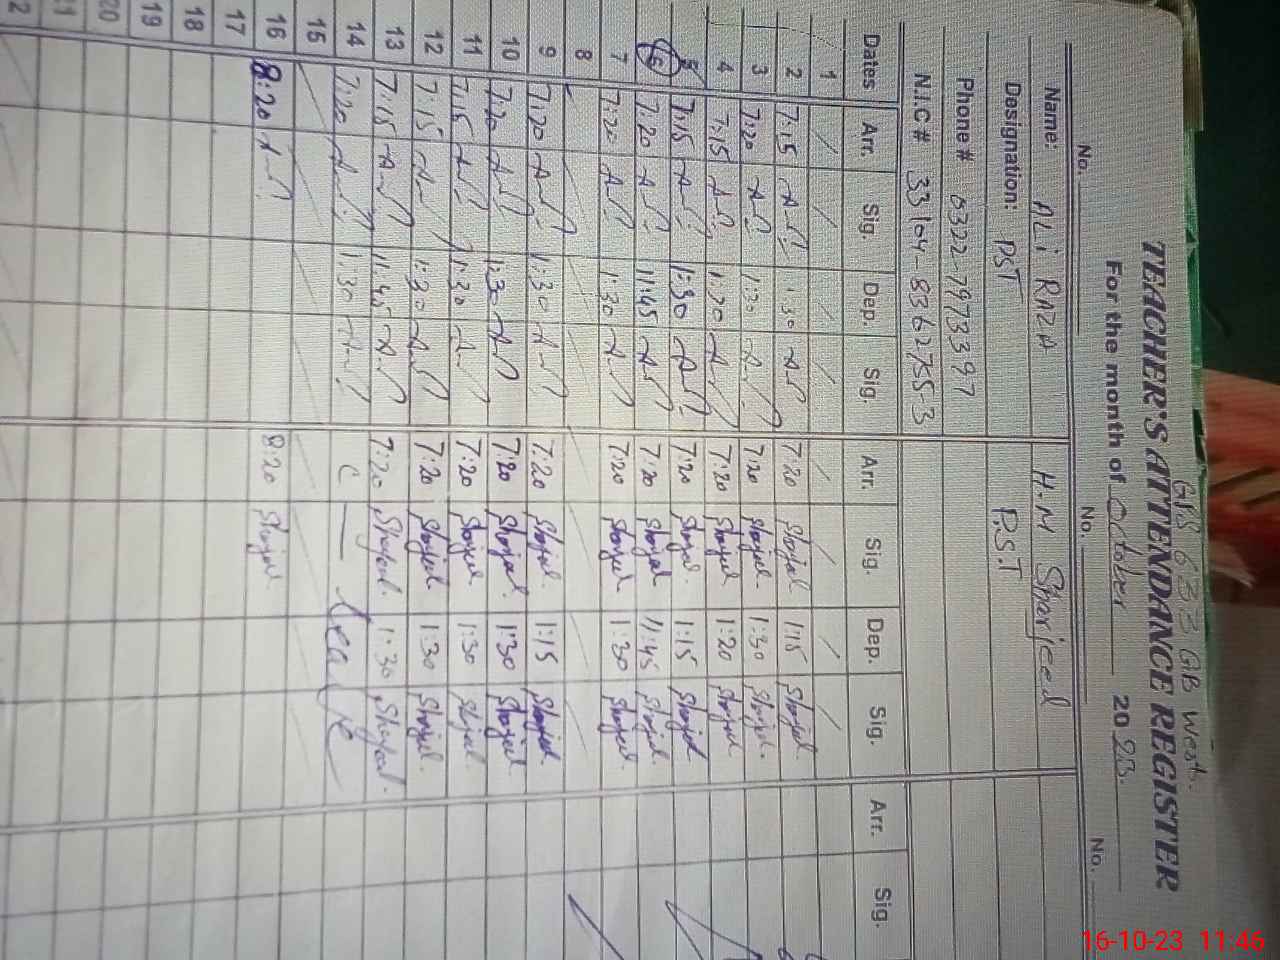 GPS 633 GB West.
TEACHER'S ATTENDANCE REGISTER
For the month of October 2023.
No. No. No.
Name: ALi RAZA H.M Sharjeel
Designation: PST P.S.T
Phone # 0322-7973397
N.I.C # 33104-8362755-3
Dates Arr. Sig. Dep. Sig. Arr. Sig. Dep. Sig. Arr. Sig.
1
2 7:15 1:30 7:20 Sharjeel 1:15 Sharjeel
3 7:20 1:30 7:20 Sharjeel 1:30 Sharjeel
4 7:15 1:30 7:20 Sharjeel 1:20 Sharjeel
5 7:15 1:30 7:20 Sharjeel 1:15 Sharjeel
6 7:20 11:45 7:20 Sharjeel 11:45 Sharjeel
7 7:20 1:30 7:20 Sharjeel 1:30 Sharjeel
8
9 7:20 1:30 7:20 Sharjeel 1:15 Sharjeel
10 7:20 1:30 7:20 Sharjeel 1:30 Sharjeel
11 7:15 1:30 7:20 Sharjeel 1:30 Sharjeel
12 7:15 1:30 7:20 Sharjeel 1:30 Sharjeel
13 7:15 11:45 7:20 Sharjeel 1:30 Sharjeel
14 7:20 1:30 C — leave
15
16 8:20 8:20 Sharjeel
17
18
19
20
16-10-23 11:46